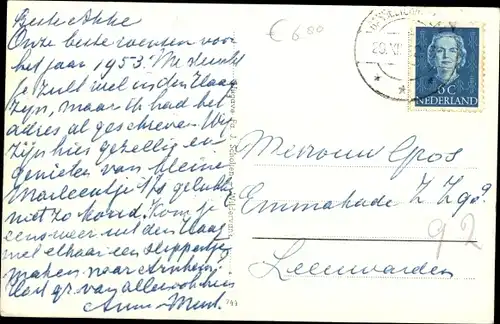 Beste Akke
Onze beste wensen voor
het jaar 1953. We
je zult wel in den Haag
zijn, maar ik had het
adres al geschreven. Wij
zijn hier gezellig en
genieten van kleine
Marleentje is geluk
niet zo koud. Kom je
eens weer uit den Haag
met elkaar een slippertje
maken naar Arnhem.
Hart. gr. van alle
Anne-
€ 6.00
6C
NEDERLAND
Mevrouw
Emmakade Z.Z. 90
92
Leeuwarden